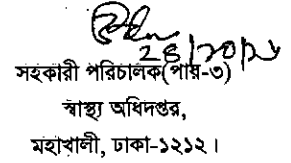 সহকারী পরিচালক(পার-৩)
স্বাস্থ্য অধিদপ্তর,
মহাখালী, ঢাকা-১২১২।